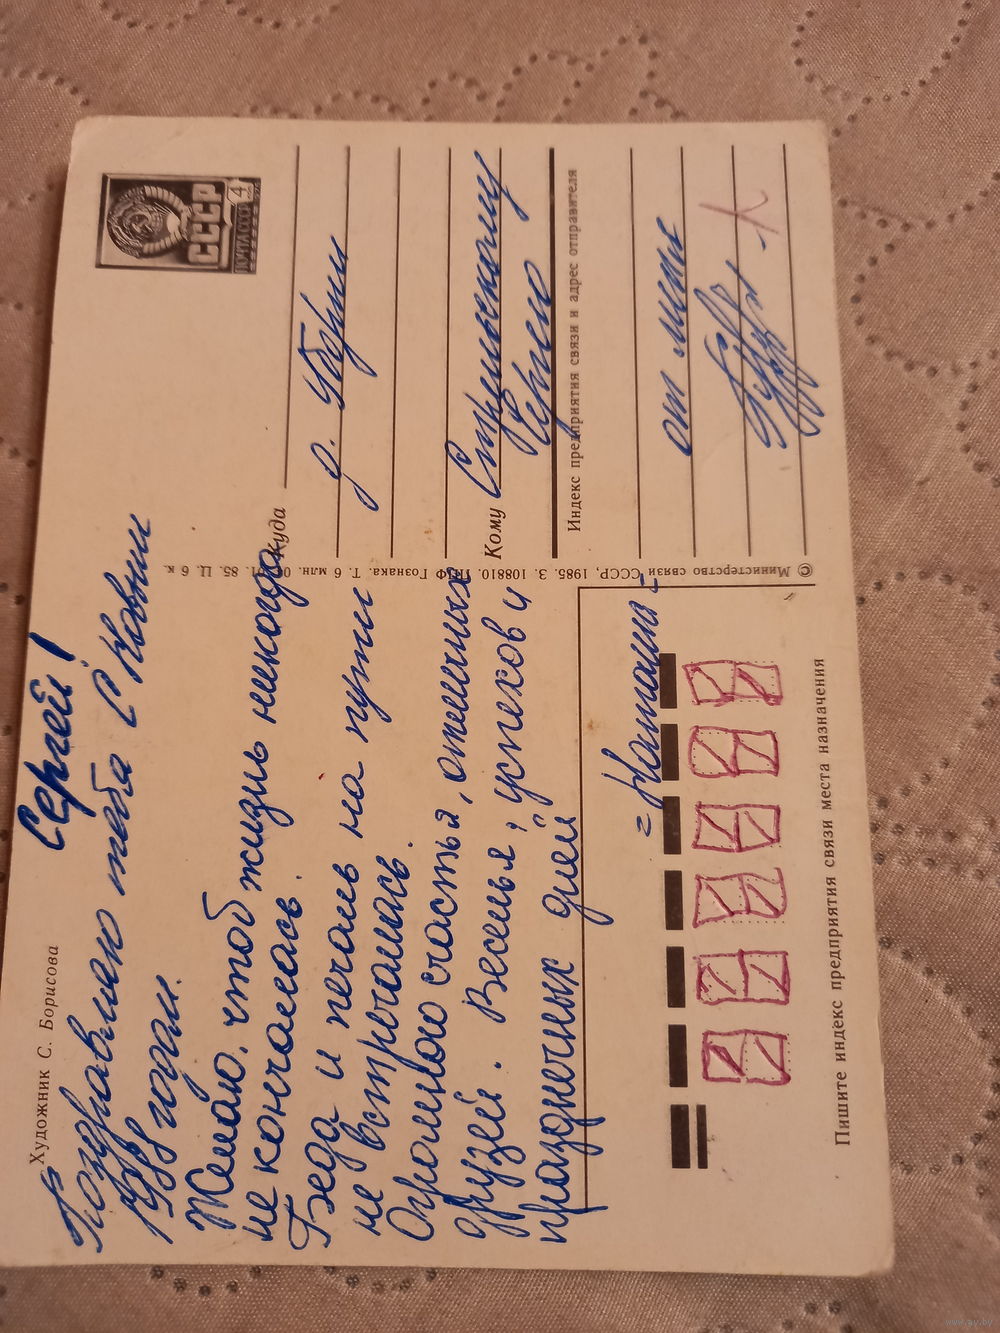 Художник С. Борисова
Сергей!
Поздравляю тебя С Новым
1988 годом.
Желаю, чтоб жизнь никогда
не кончалась.
Беда и печаль на пути
не встречались.
Огромного счастья, отличных
друзей. Веселья, успехов и
праздничных дней
= Наташа =
ПОЧТА СССР
4
СССР
Куда
д. Уборки
Кому
Стрильскому
Сергею
Индекс предприятия связи и адрес отправителя
от меня
© Министерство связи СССР, 1985. З. 108810. ППФ Гознака. Т. 6 млн. 85. Ц. 6 к.
Пишите индекс предприятия связи места назначения
www.ay.by